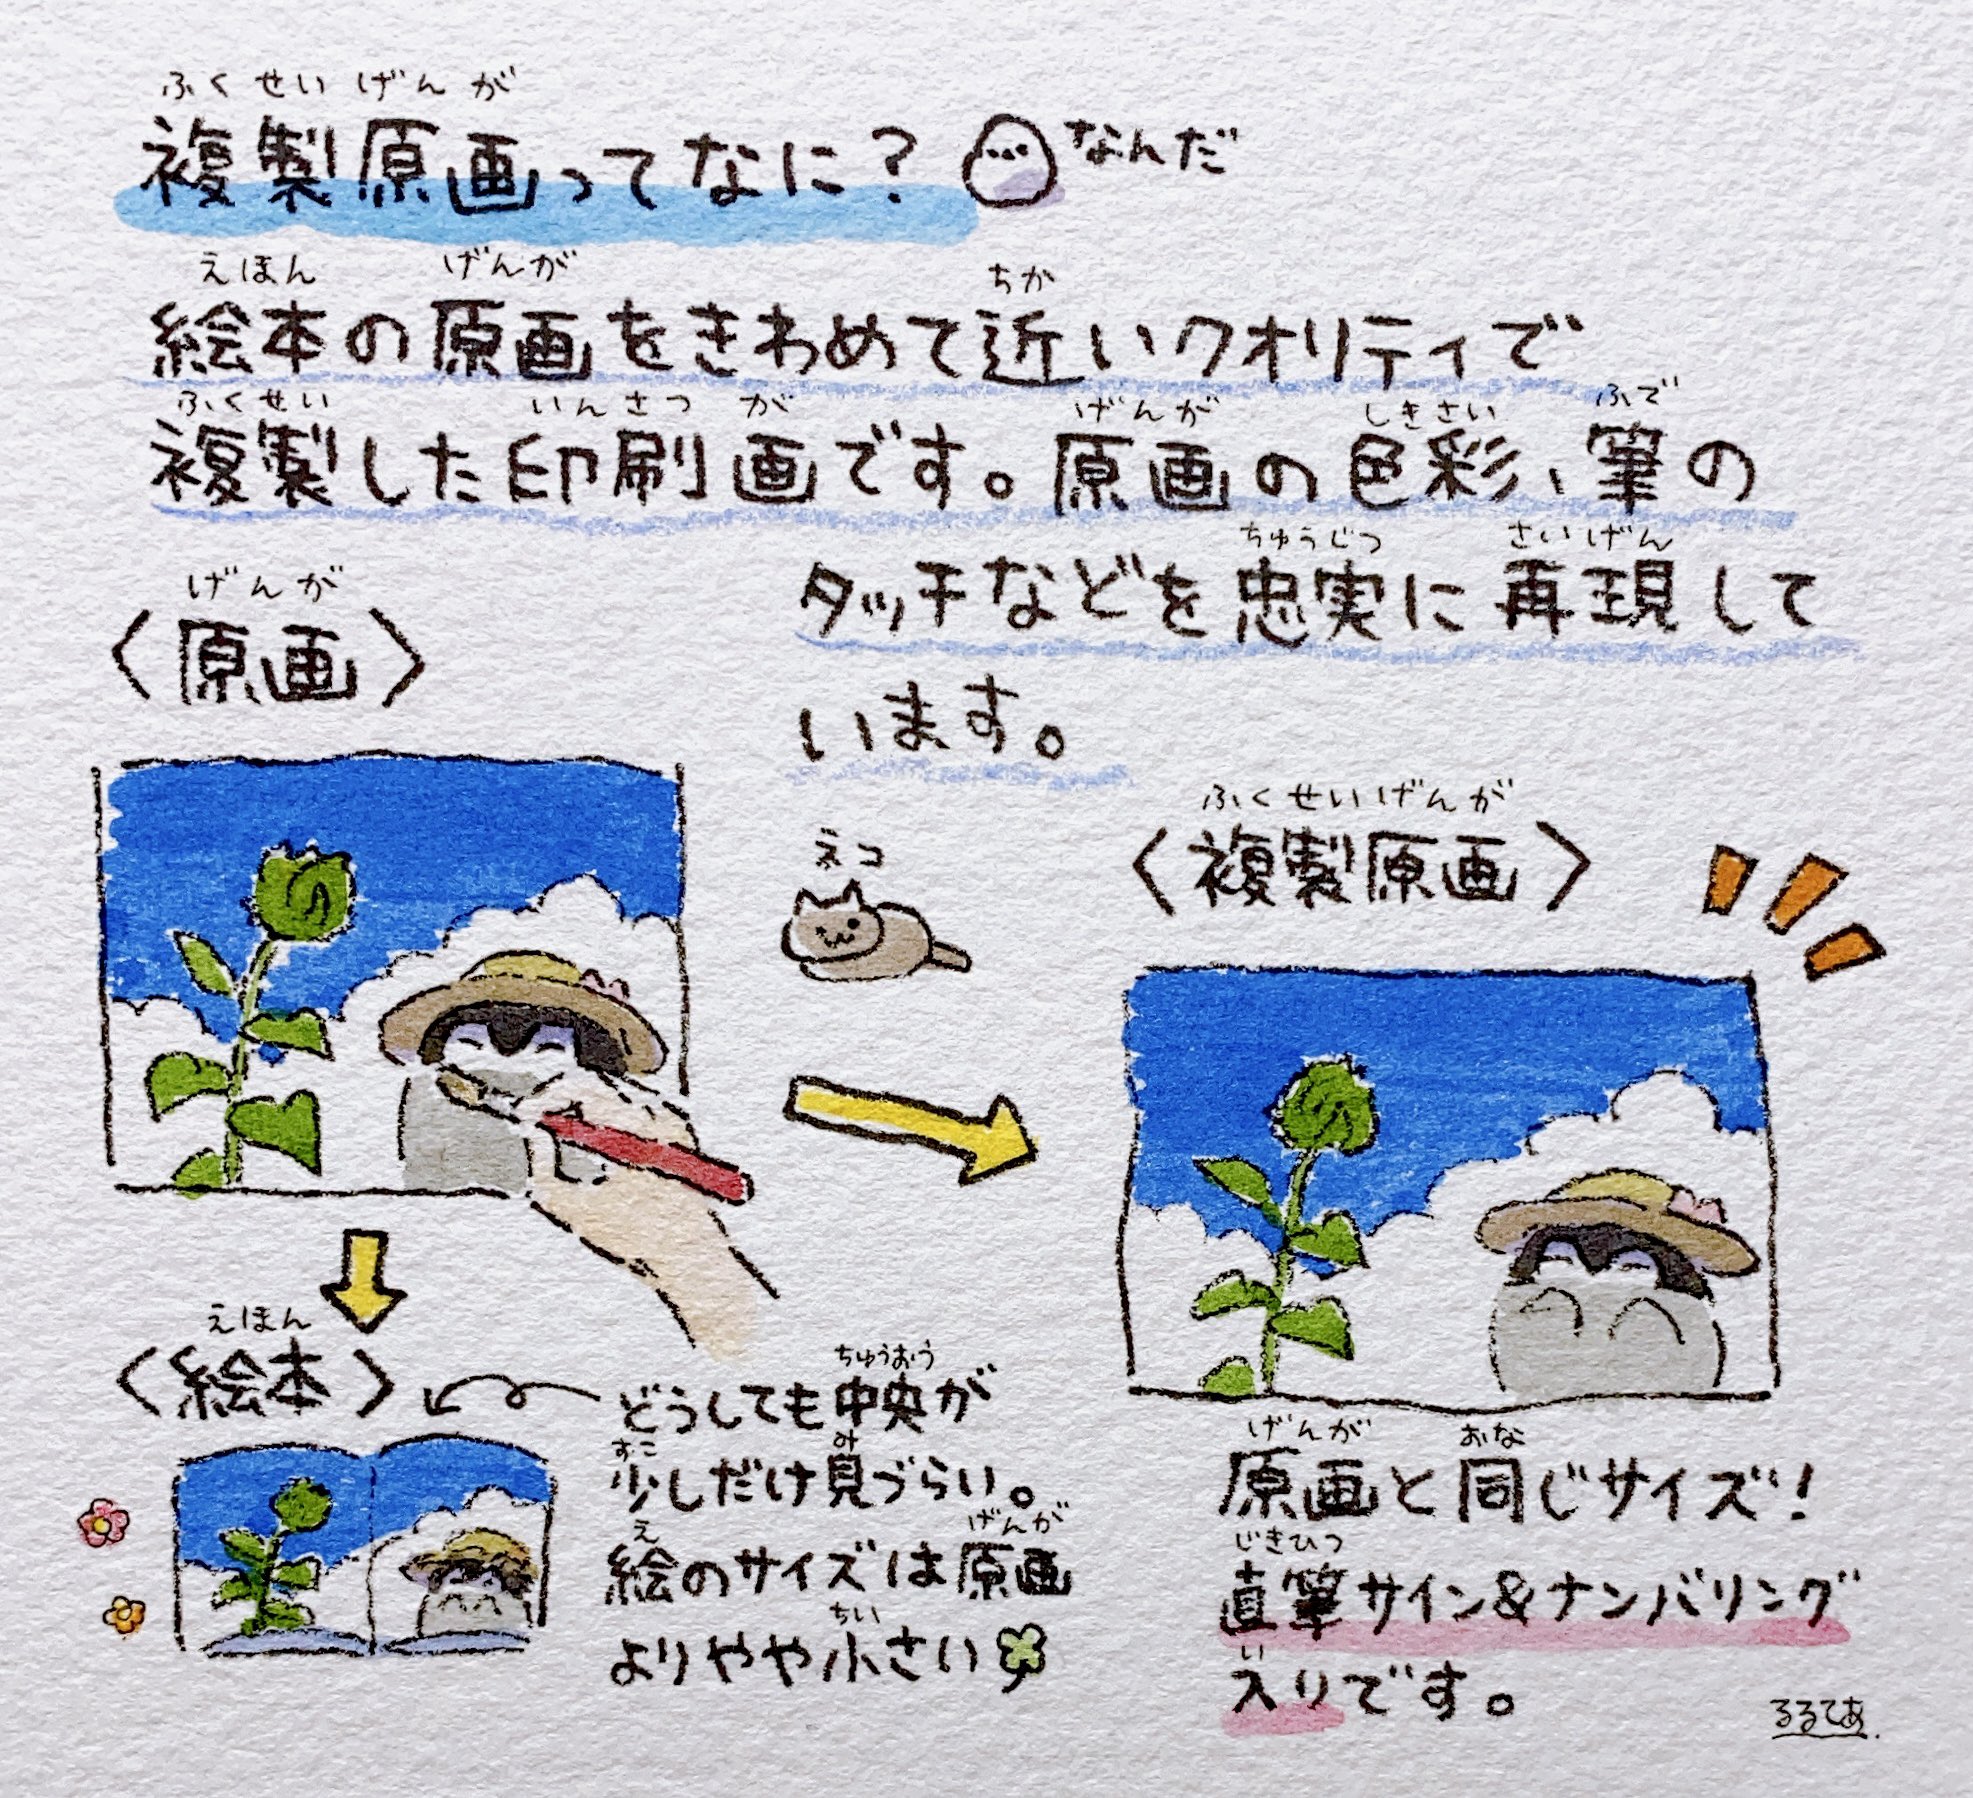 ふくせいげんが
複製原画ってなに？ なんだ
えほん げんが ちか
絵本の原画をきわめて近いクオリティで
ふくせい いんさつ が げんが しきさい ふで
複製した印刷画です。原画の色彩、筆の
ちゅうじつ さいげん
タッチなどを忠実に再現して
います。
げんが
〈原画〉
ネコ
ふくせいげんが
〈複製原画〉
えほん
〈絵本〉
ちゅうおう
どうしても中央が
すこ み
少しだけ見づらい。
え げんが
絵のサイズは原画
ちい
よりやや小さい
げんが おな
原画と同じサイズ！
じきひつ
直筆サイン&ナンバリング
い
入りです。
るるてあ.